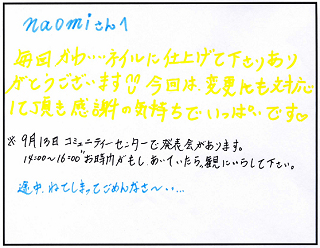 naomiさんへ
毎回かわ…ネイルに仕上げて下さりあり
がとうございます 今回は、変更にも対応
して頂き感謝の気持ちでいっぱいです
※ 9月13日 コミュニティーセンターで発表会があります。
14:00〜16:00 お時間がもし、あいていたら、観にいらして下さい。
途中、ねてしまってごめんなさ〜い…